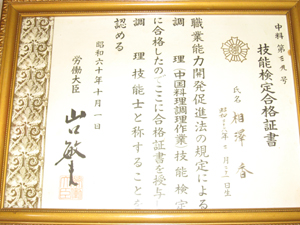 技能検定合格証書
氏名 相澤 春
職業能力開発促進法の規定による
調理(中国料理調理作業)技能検定
に合格したのでここに合格証書を授与し
調理技能士と称することを
認める
昭和六十年十月一日
労働大臣
山口敏夫